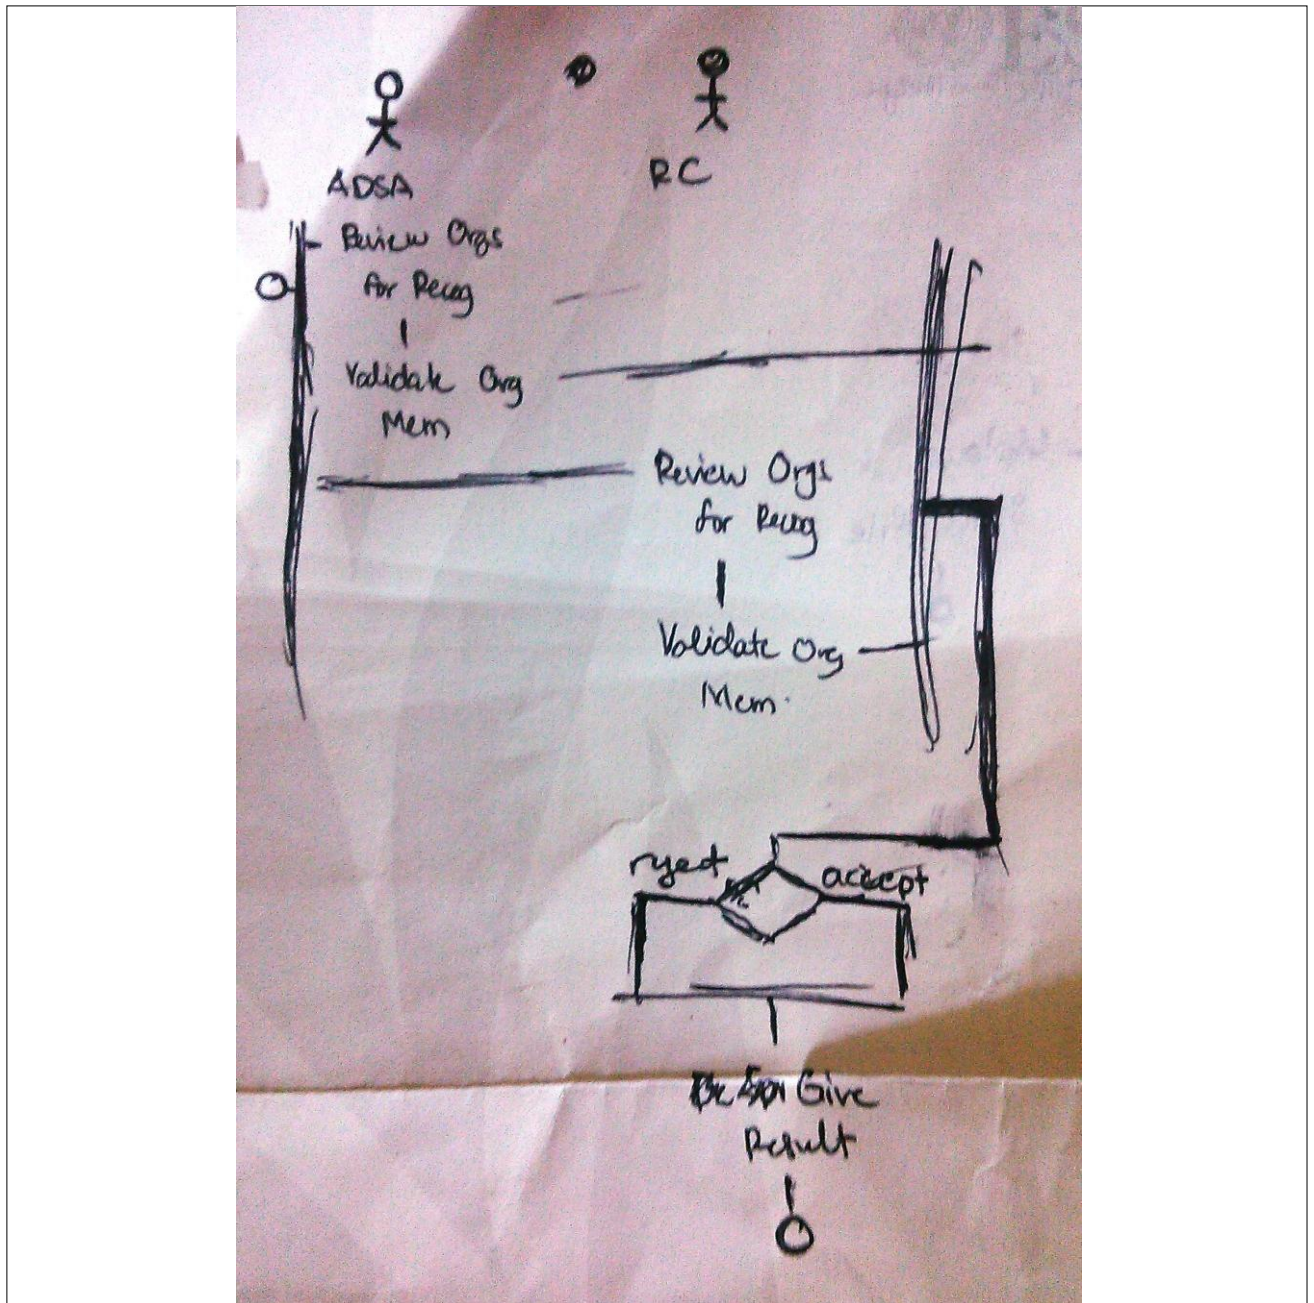 ADSA
RC
Review Orgs
for Recog
Validate Org
Mem
Review Orgs
for Recog
Validate Org
Mem.
reject
accept
Give
Result